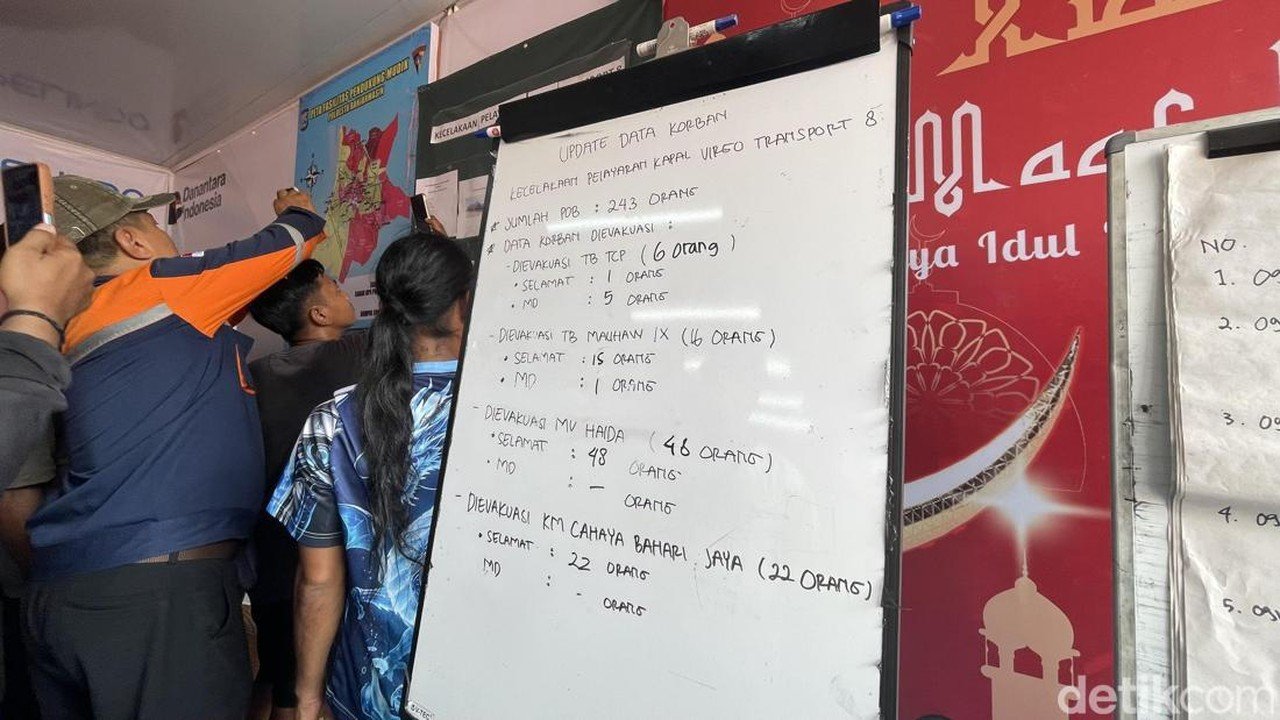 PETA FASILITAS PENDUKUNG MUDIK
POLRESTA BANJARMASIN
Danantara
Indonesia
KECELAKAAN PELA
UPDATE DATA KORBAN
KECELAKAAN PELAYARAN KAPAL VIRGO TRANSPORT 8
* JUMLAH POB : 243 ORANG
* DATA KORBAN DIEVAKUASI :
- DIEVAKUASI TB TCP (6 orang)
• SELAMAT : 1 ORANG
• MD : 5 ORANG
- DIEVAKUASI TB MAUHAW IX (16 ORANG)
• SELAMAT : 15 ORANG
• MD : 1 ORANG
- DIEVAKUASI MV HAIDA (48 ORANG)
• SELAMAT : 48 ORANG
• MD : - ORANG
- DIEVAKUASI KM CAHAYA BAHARI JAYA (22 ORANG)
• SELAMAT : 22 ORANG
MD : - ORANG
Maaf
ya Idul
NO.
1. 09
2. 09
3. 09
4. 09
5. 09
detikcom